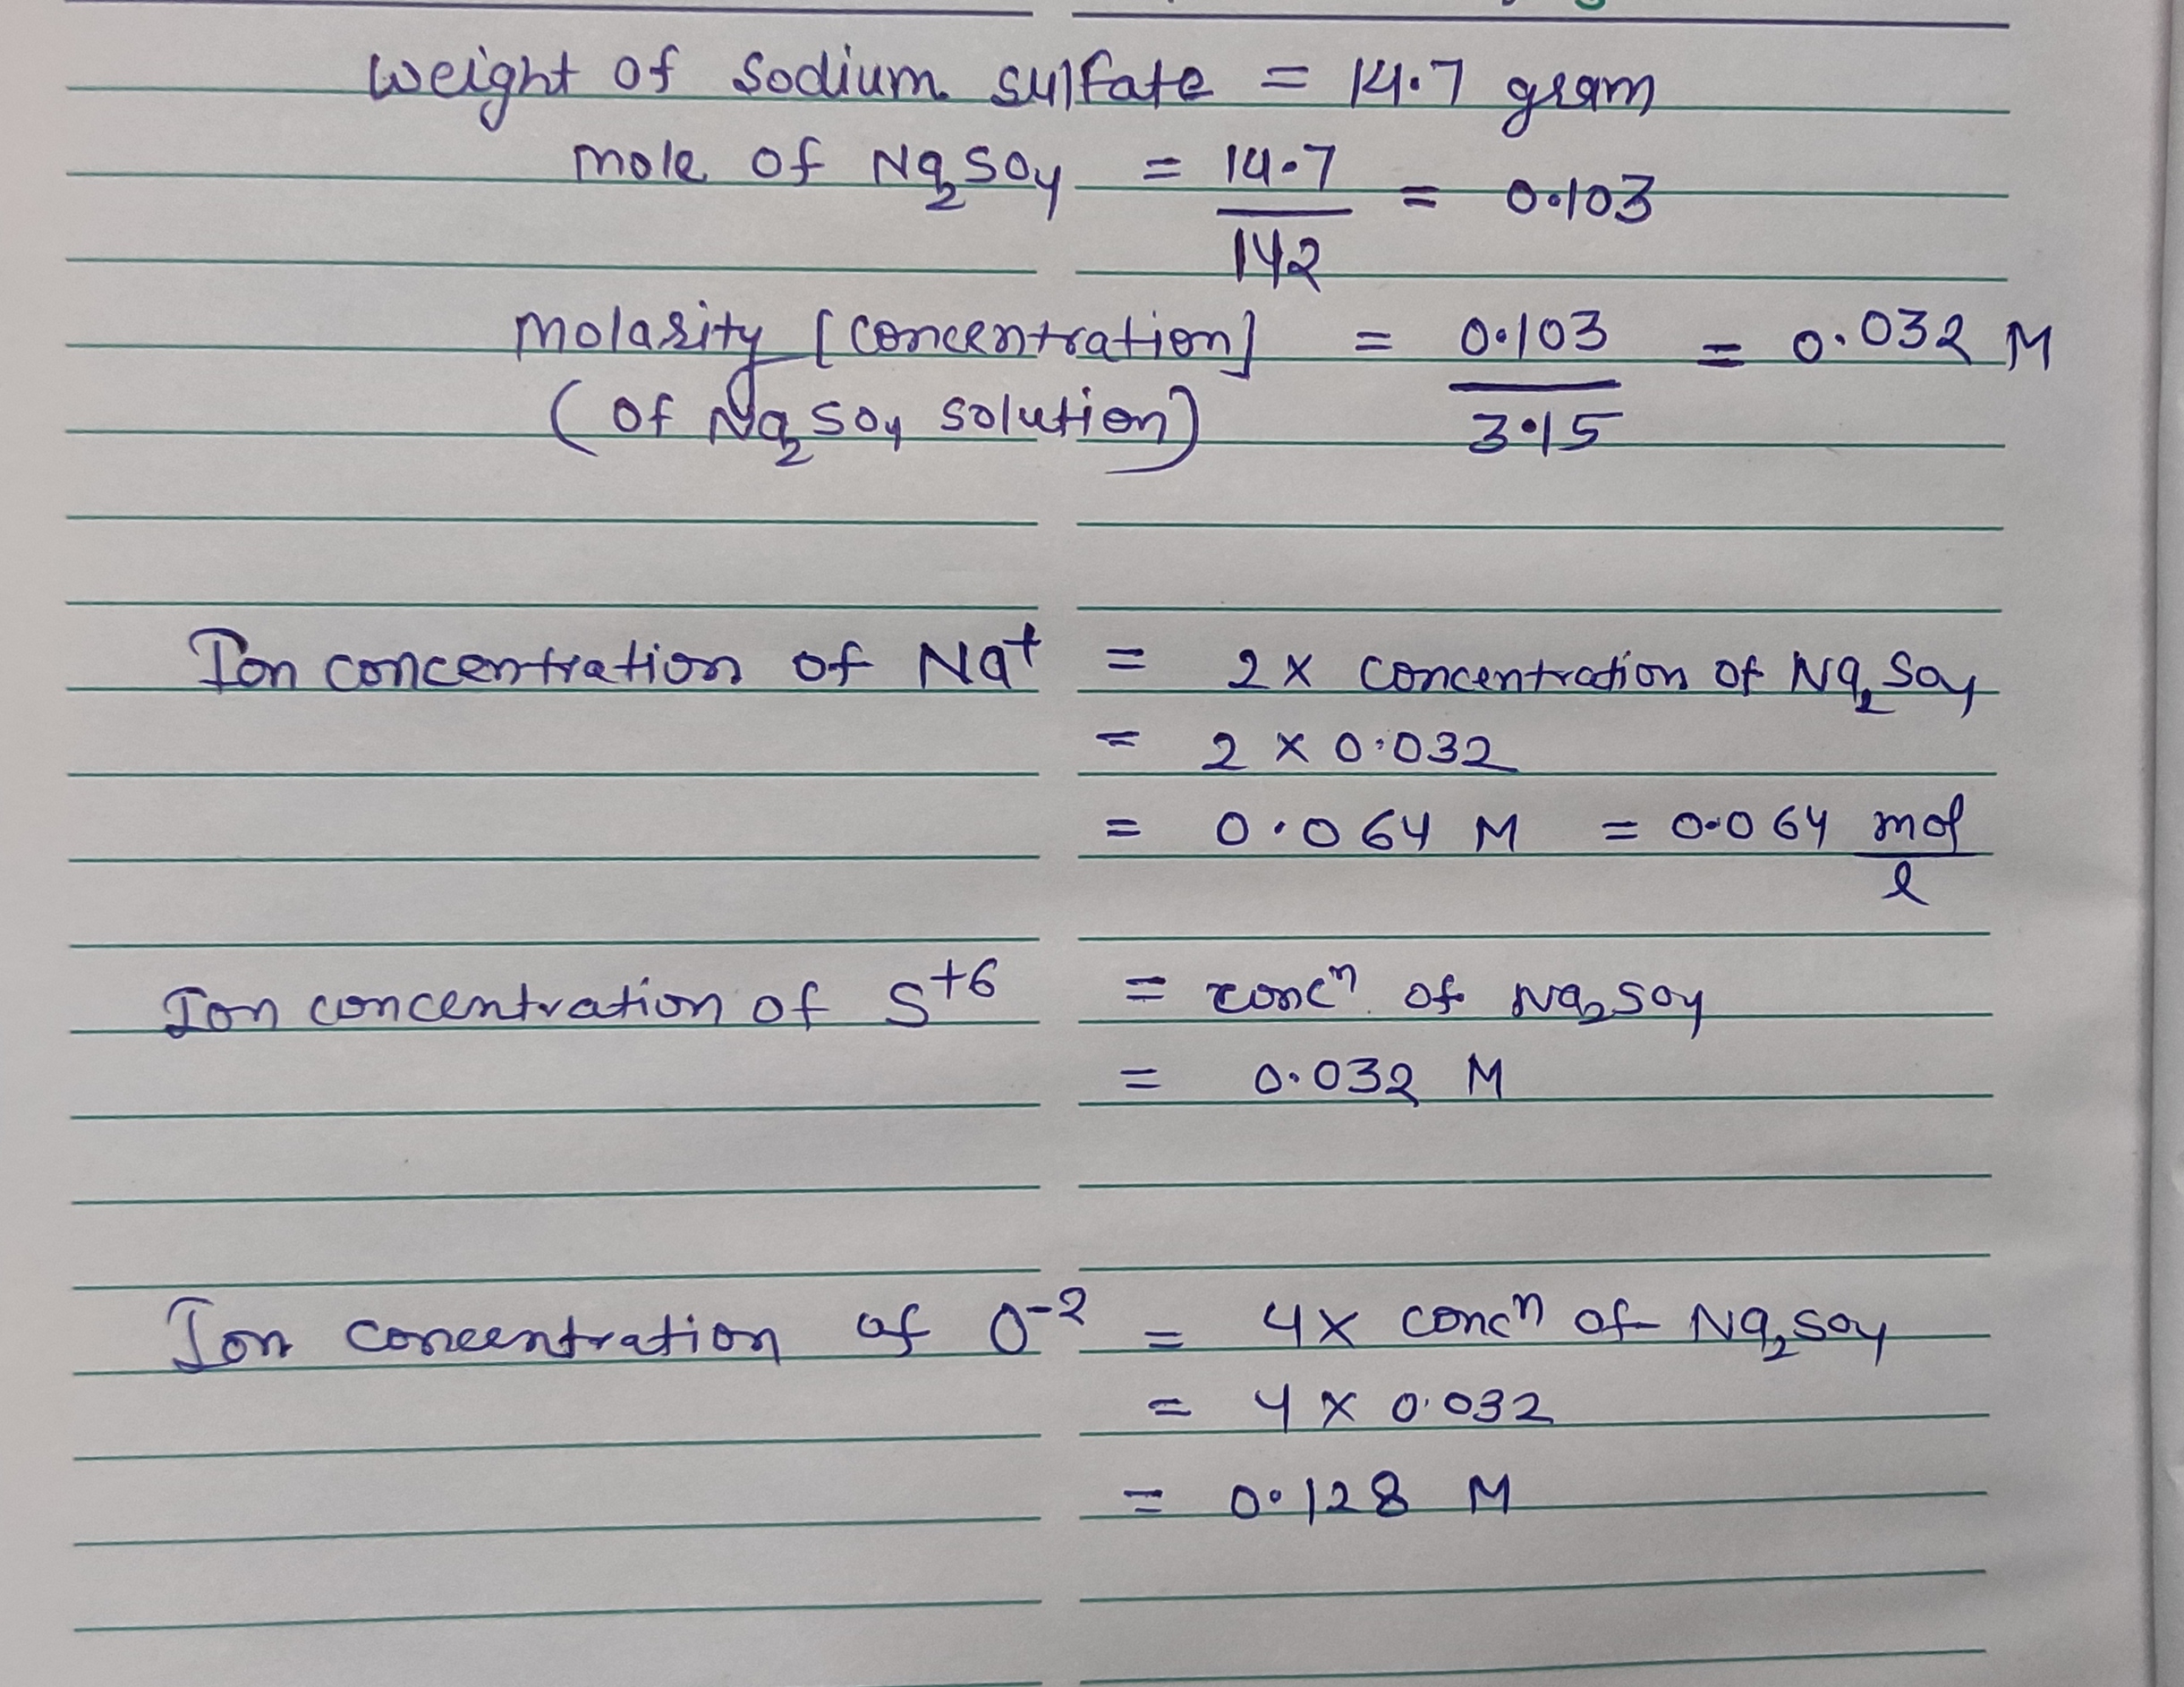 Weight of Sodium sulfate = 14.7 gram
mole of Na2SO4 = 14.7/142 = 0.103
Molarity [concentration] = 0.103/3.15 = 0.032 M
(of Na2SO4 solution)
Ion concentration of Na+ = 2 x concentration of Na2SO4
= 2 x 0.032
= 0.064 M = 0.064 mol/l
Ion concentration of S+6 = concn of Na2SO4
= 0.032 M
Ion concentration of O-2 = 4x concn of Na2SO4
= 4 x 0.032
= 0.128 M